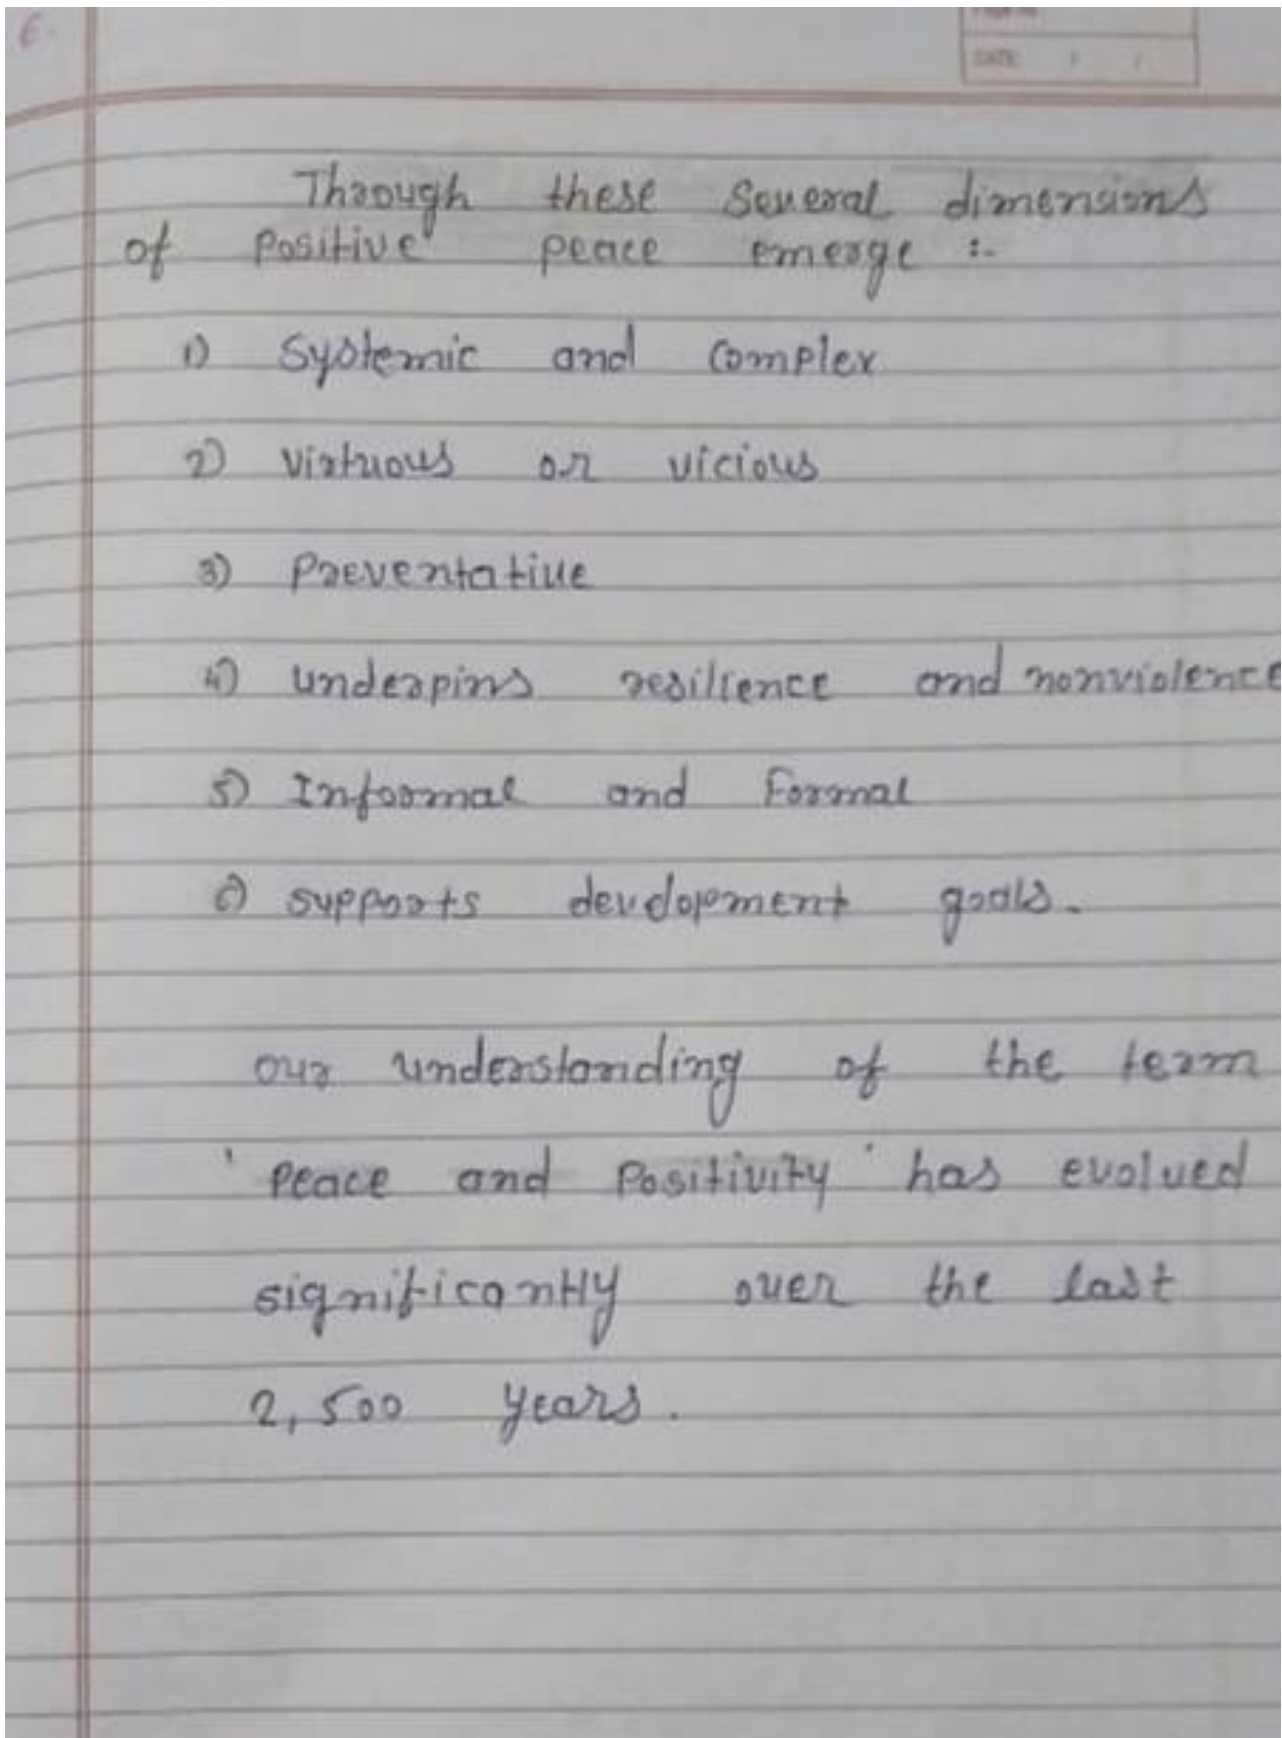 6.
DATE / /
Through these several dimensions
of positive peace emerge :-
1) Systemic and Complex
2) Virtuous or vicious
3) Preventative
4) underpins resilience and nonviolence
5) Informal and Formal
6) supports development goals.
our understanding of the term
'Peace and Positivity' has evolved
significantly over the last
2,500 years.